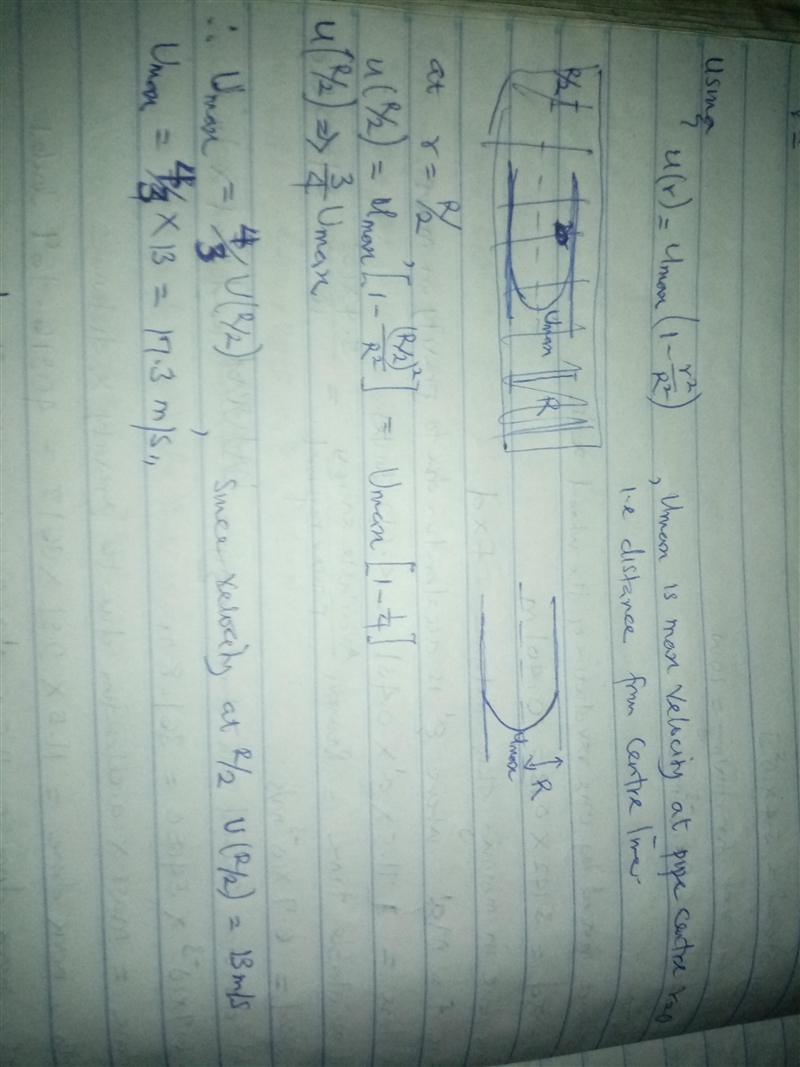 r =
Using
u(r) = Umax (1 - r²/R²) , Umax is max velocity at pipe centre r=0
i.e distance from centre line
R/2 Umax R
Umax R
at r = R/2
u(R/2) = Umax [1 - (R/2)²/R²] = Umax [1 - 1/4]
u(R/2) => 3/4 Umax
∴ Umax = 4/3 U(R/2) , Since velocity at R/2 U(R/2) = 13 m/s
Umax = 4/3 × 13 = 17.3 m/s,,